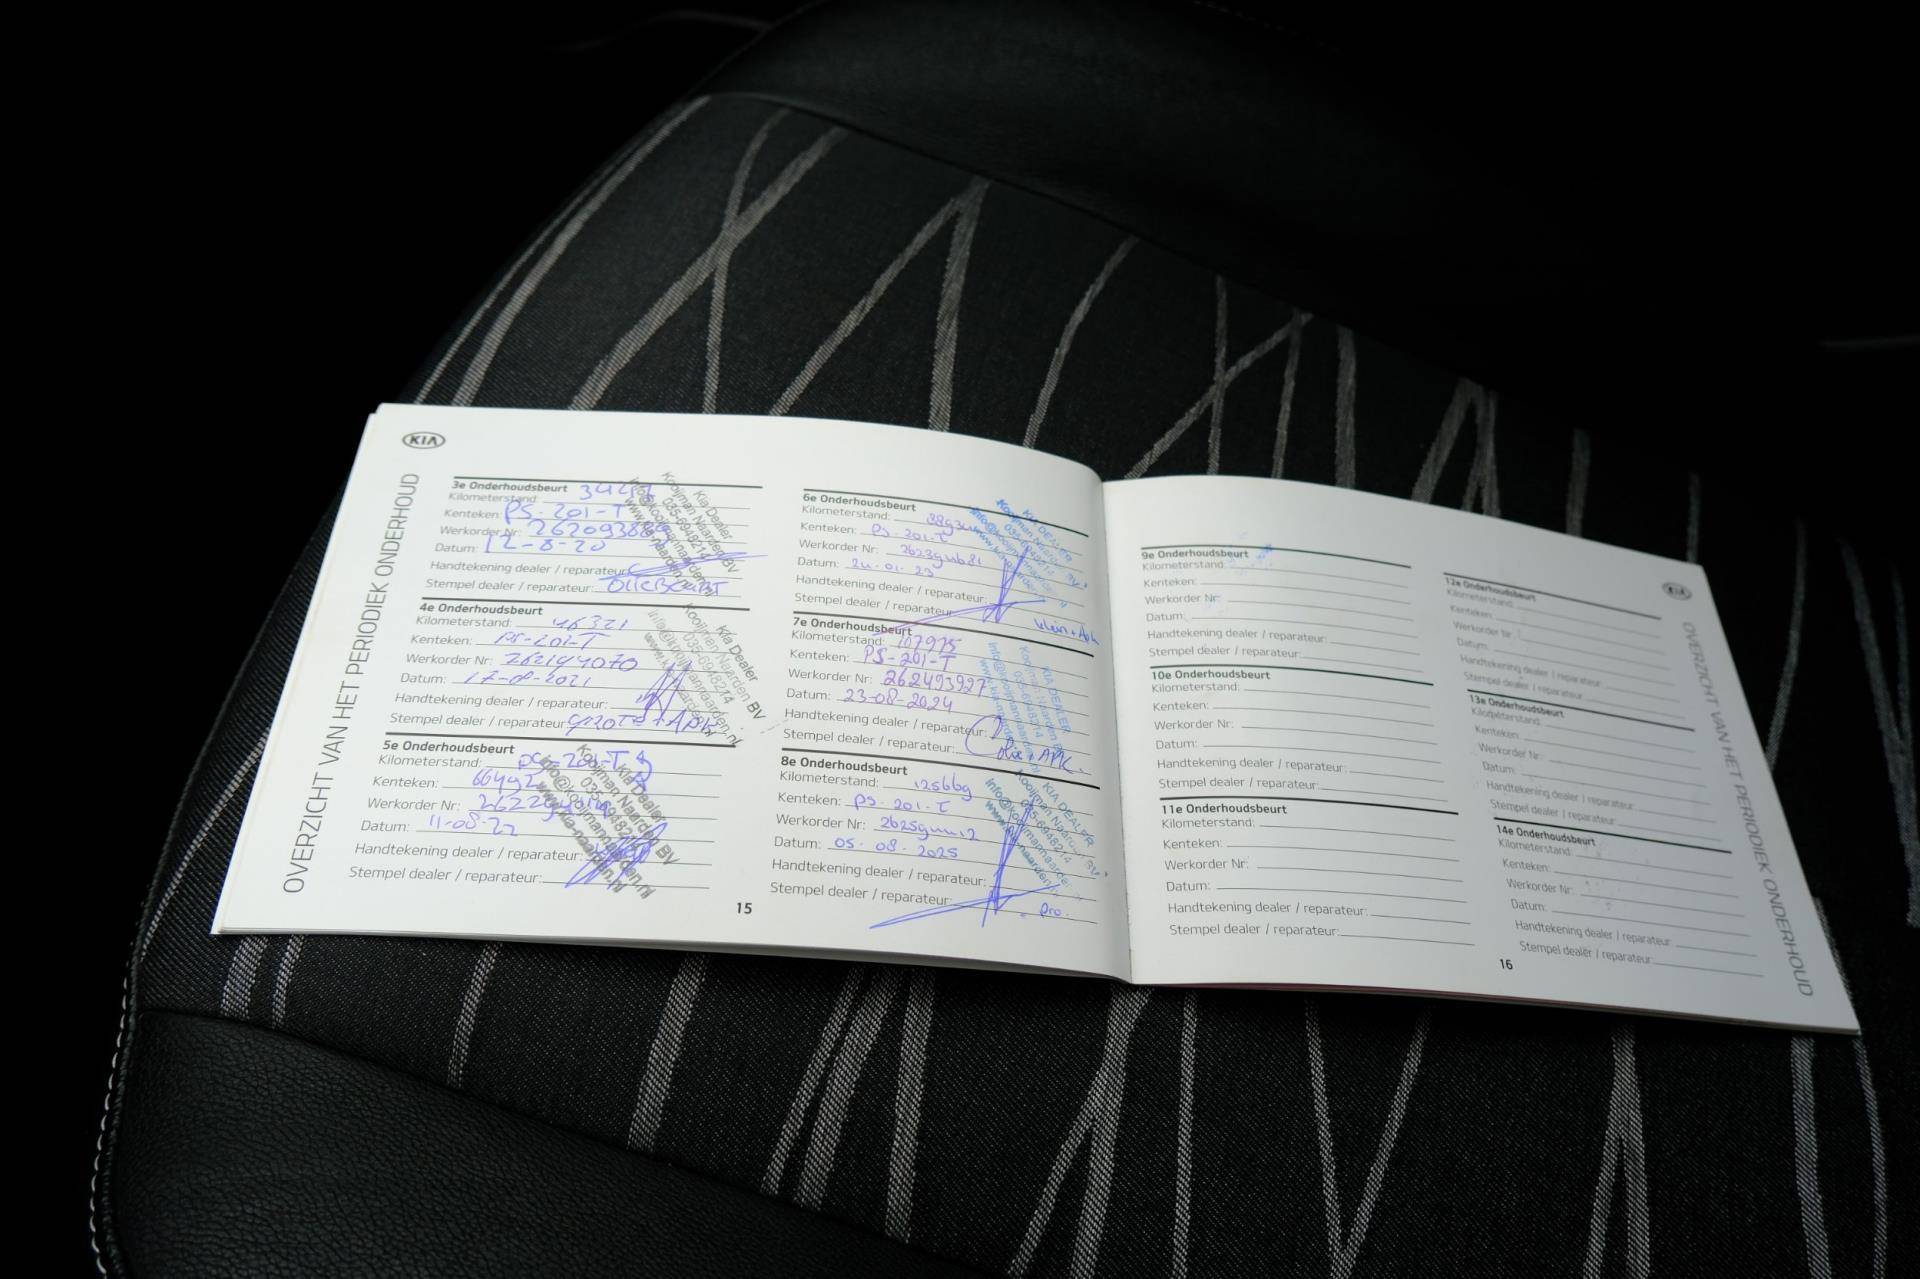 KIA
OVERZICHT VAN HET PERIODIEK ONDERHOUD
3e Onderhoudsbeurt
Kilometerstand:
Kenteken: PS-201-T
Werkorder Nr:
Datum: 12-8-20
Handtekening dealer / reparateur:
Stempel dealer / reparateur:
Kia Dealer
Kooijman Naarden BV
035-6948214
4e Onderhoudsbeurt
Kilometerstand: 46321
Kenteken: PS-201-T
Werkorder Nr: 262144070
Datum: 17-08-2021
Handtekening dealer / reparateur:
Stempel dealer / reparateur: grote + APK
Kia Dealer
Kooijman Naarden BV
035-6948214
5e Onderhoudsbeurt
Kilometerstand: PS-201-T
Kenteken: 66492
Werkorder Nr:
Datum: 11-08-22
Handtekening dealer / reparateur:
Stempel dealer / reparateur:
Kia Dealer
Kooijman Naarden BV
15
6e Onderhoudsbeurt
Kilometerstand:
Kenteken: PS-201-T
Werkorder Nr:
Datum: 24-01-23
Handtekening dealer / reparateur:
Stempel dealer / reparateur:
klein + Apk
KIA DEALER
Kooijman Naarden BV
035-6948214
7e Onderhoudsbeurt
Kilometerstand: 107975
Kenteken: PS-201-T
Werkorder Nr: 262493927
Datum: 23-08-2024
Handtekening dealer / reparateur:
Stempel dealer / reparateur: Olie APK.
KIA DEALER
Kooijman Naarden BV
035-6948214
8e Onderhoudsbeurt
Kilometerstand: 125669
Kenteken: PS-201-T
Werkorder Nr:
Datum: 05-08-2025
Handtekening dealer / reparateur:
Stempel dealer / reparateur: pro.
KIA DEALER
Kooijman Naarden BV
035-6948214
9e Onderhoudsbeurt
Kilometerstand:
Kenteken:
Werkorder Nr:
Datum:
Handtekening dealer / reparateur:
Stempel dealer / reparateur:
10e Onderhoudsbeurt
Kilometerstand:
Kenteken:
Werkorder Nr:
Datum:
Handtekening dealer / reparateur:
Stempel dealer / reparateur:
11e Onderhoudsbeurt
Kilometerstand:
Kenteken:
Werkorder Nr:
Datum:
Handtekening dealer / reparateur:
Stempel dealer / reparateur:
12e Onderhoudsbeurt
Kilometerstand:
Kenteken:
Werkorder Nr:
Datum:
Handtekening dealer / reparateur:
Stempel dealer / reparateur:
13e Onderhoudsbeurt
Kilometerstand:
Kenteken:
Werkorder Nr:
Datum:
Handtekening dealer / reparateur:
Stempel dealer / reparateur:
14e Onderhoudsbeurt
Kilometerstand:
Kenteken:
Werkorder Nr:
Datum:
Handtekening dealer / reparateur:
Stempel dealer / reparateur:
16
KIA
OVERZICHT VAN HET PERIODIEK ONDERHOUD